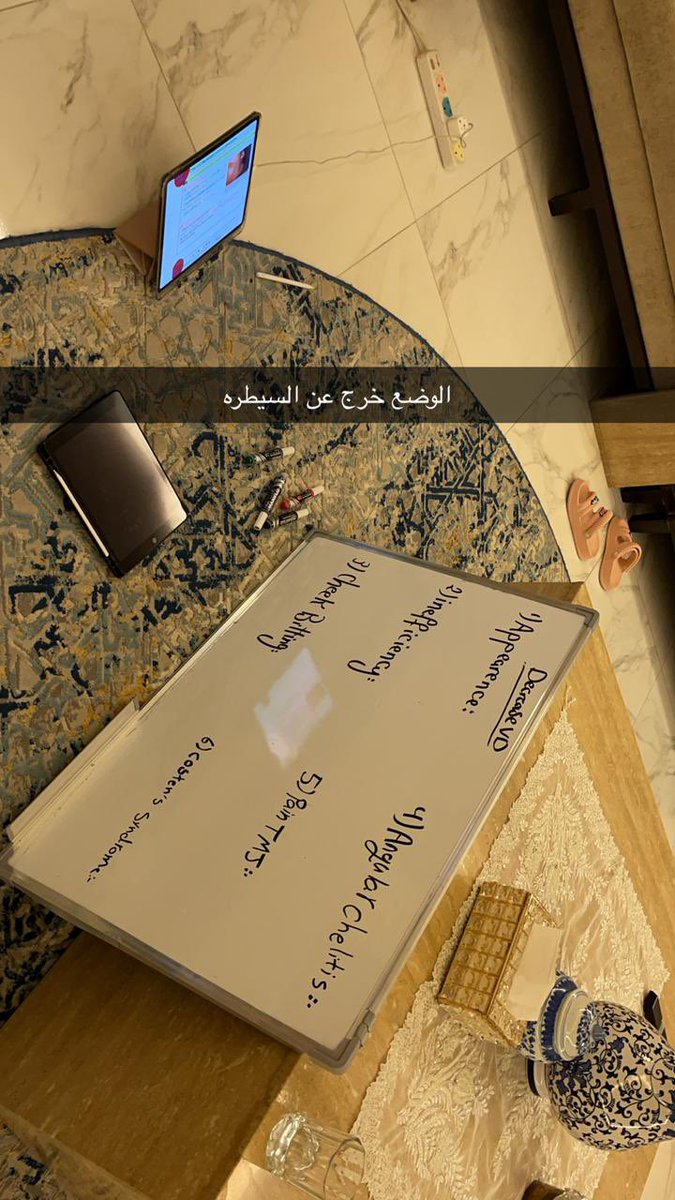 الوضع خرج عن السيطره
Decrease VD
1) Appearence:
2) inefficiency:
3) Cheek Bitting:
4) Angular Chelitis:
5) Pain TMJ:
6) Costen's Syndrome: